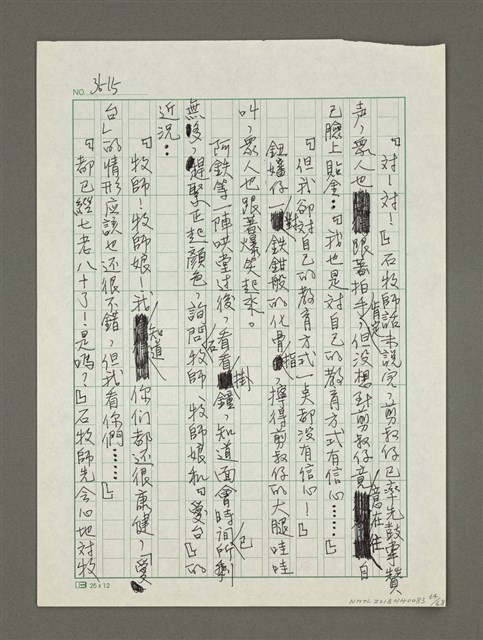 NO. 36-15
「对！对！」石牧師話未說完，剪叔仔已率先鼓掌赞
声，眾人也跟著拍手肯定，但没想到剪叔仔竟意在往自
己臉上貼金：「我也是对自己的教育方式有信心……」
「但我卻对自己的教育方式一点都没有信心！」
鈕嬸仔一對鉄鉗般的化骨指，擰得剪叔仔的大腿哇哇
叫，眾人也跟著爆笑起來。
阿鉄等一陣哄堂过後，看看石掛鐘，知道面會時间所剩已
無多，趕緊正起顏色，詢問牧師、牧師娘和「愛台」的
近況：
「牧師！牧師娘！我知道你们都还很康健，「愛
台」的情形应該也还很不錯，但我看你們……」
「都已經七老八十了！是嗎？」石牧師先会心地对牧
25×12
NMTL2018NH0083